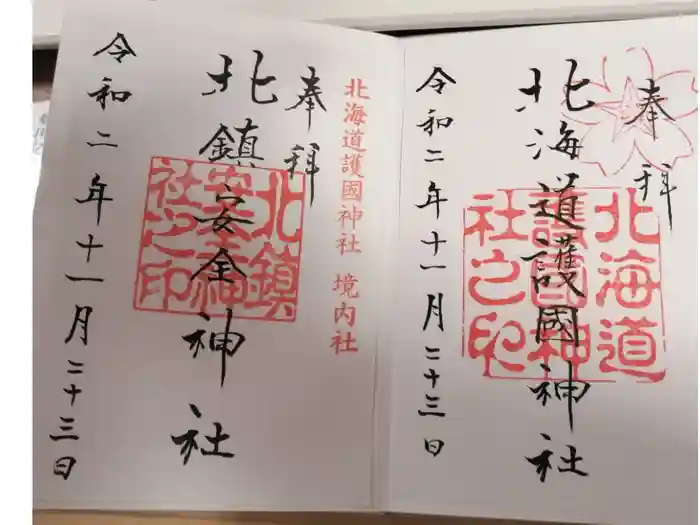 奉拝
北海道護國神社
北海道護國神社之印
令和二年十一月二十三日
北海道護國神社 境内社
奉拝
北鎮安全神社
北鎮安全神社之印
令和二年十一月二十三日